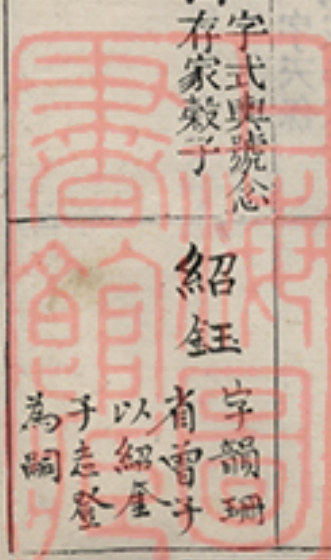 字式輿號念
存家穀子
紹鈺
字韻珊
省曾子
以紹奎
子志登
為嗣